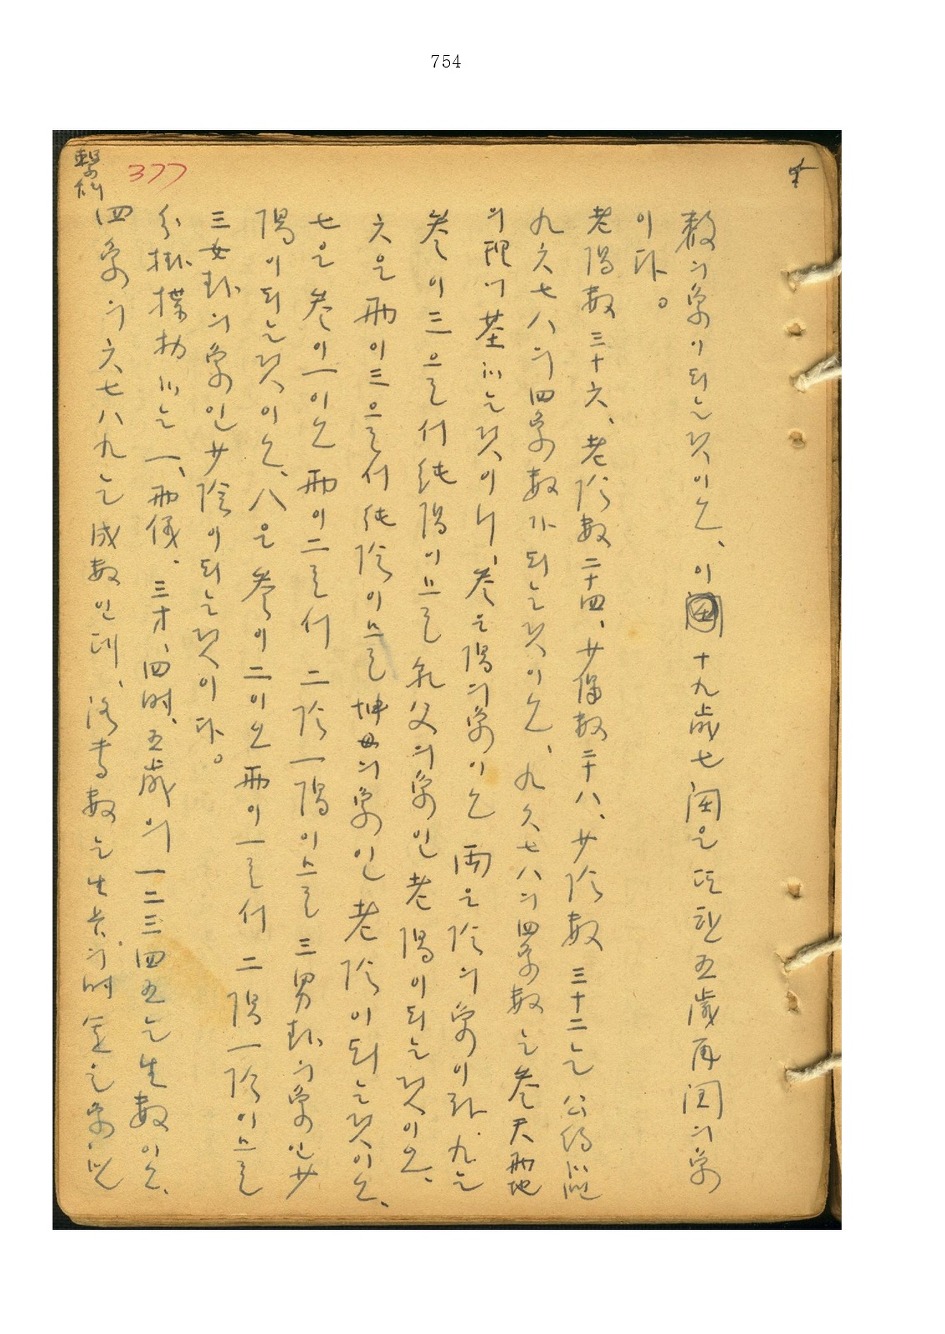 754
377
數의象이되는것이오、이十九歲七閏은 또한五歲再閏의象
이다。
老陽數三十六、老陰數二十四、少陽數二十八、少陰數 三十二는 公約하면
九六七八의四象數가되는것이오、九六七八의四象數는叁天兩地
의理에基하는것이니、叁은陽의象이오 兩은陰의象이라、九는
叁이三으로서純陽이므로 乾父의象인 老陽이되는것이오、
六은 兩이三으로서純陰이므로坤母의象인 老陰이되는것이오、
七은 叁이一이오 兩이二로서 二陰一陽이므로 三男卦의象인少
陽이되는것이오、八은 叁이二이오 兩이一로서 二陽一陰이므로
三女卦의象인少陰이되는것이다。
分掛揲扐하는 一、兩儀、三才、四時、五歲의 一二三四五는生數이오、
四象의六七八九는成數인데、洛書數는生長의時運을象하